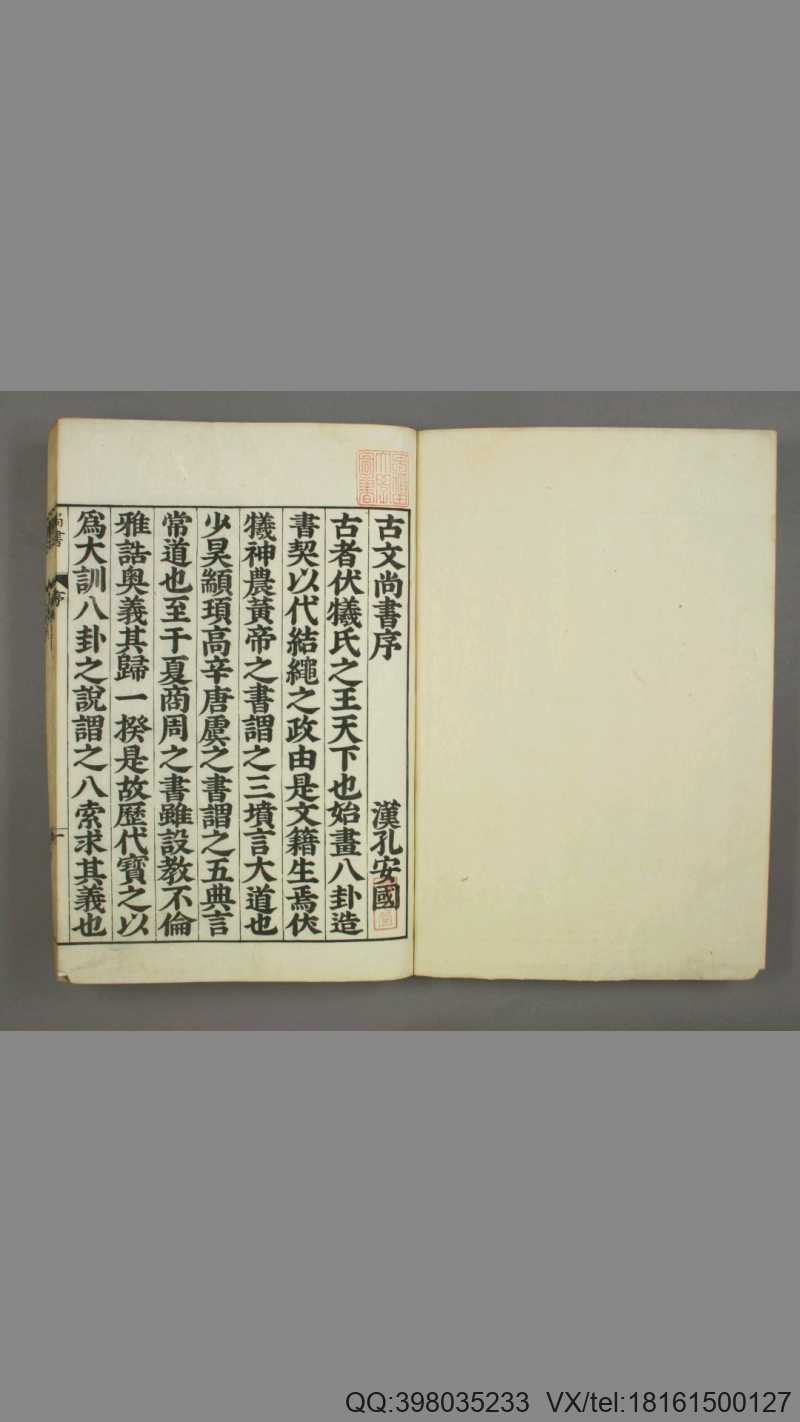 古文尚書序 漢孔安國
古者伏犧氏之王天下也始畫八卦造
書契以代結繩之政由是文籍生焉伏
犧神農黃帝之書謂之三墳言大道也
少昊顓頊高辛唐虞之書謂之五典言
常道也至于夏商周之書雖設教不倫
雅誥奧義其歸一揆是故歷代寶之以
爲大訓八卦之說謂之八索求其義也
尚書 序 一
QQ:398035233 VX/tel:18161500127